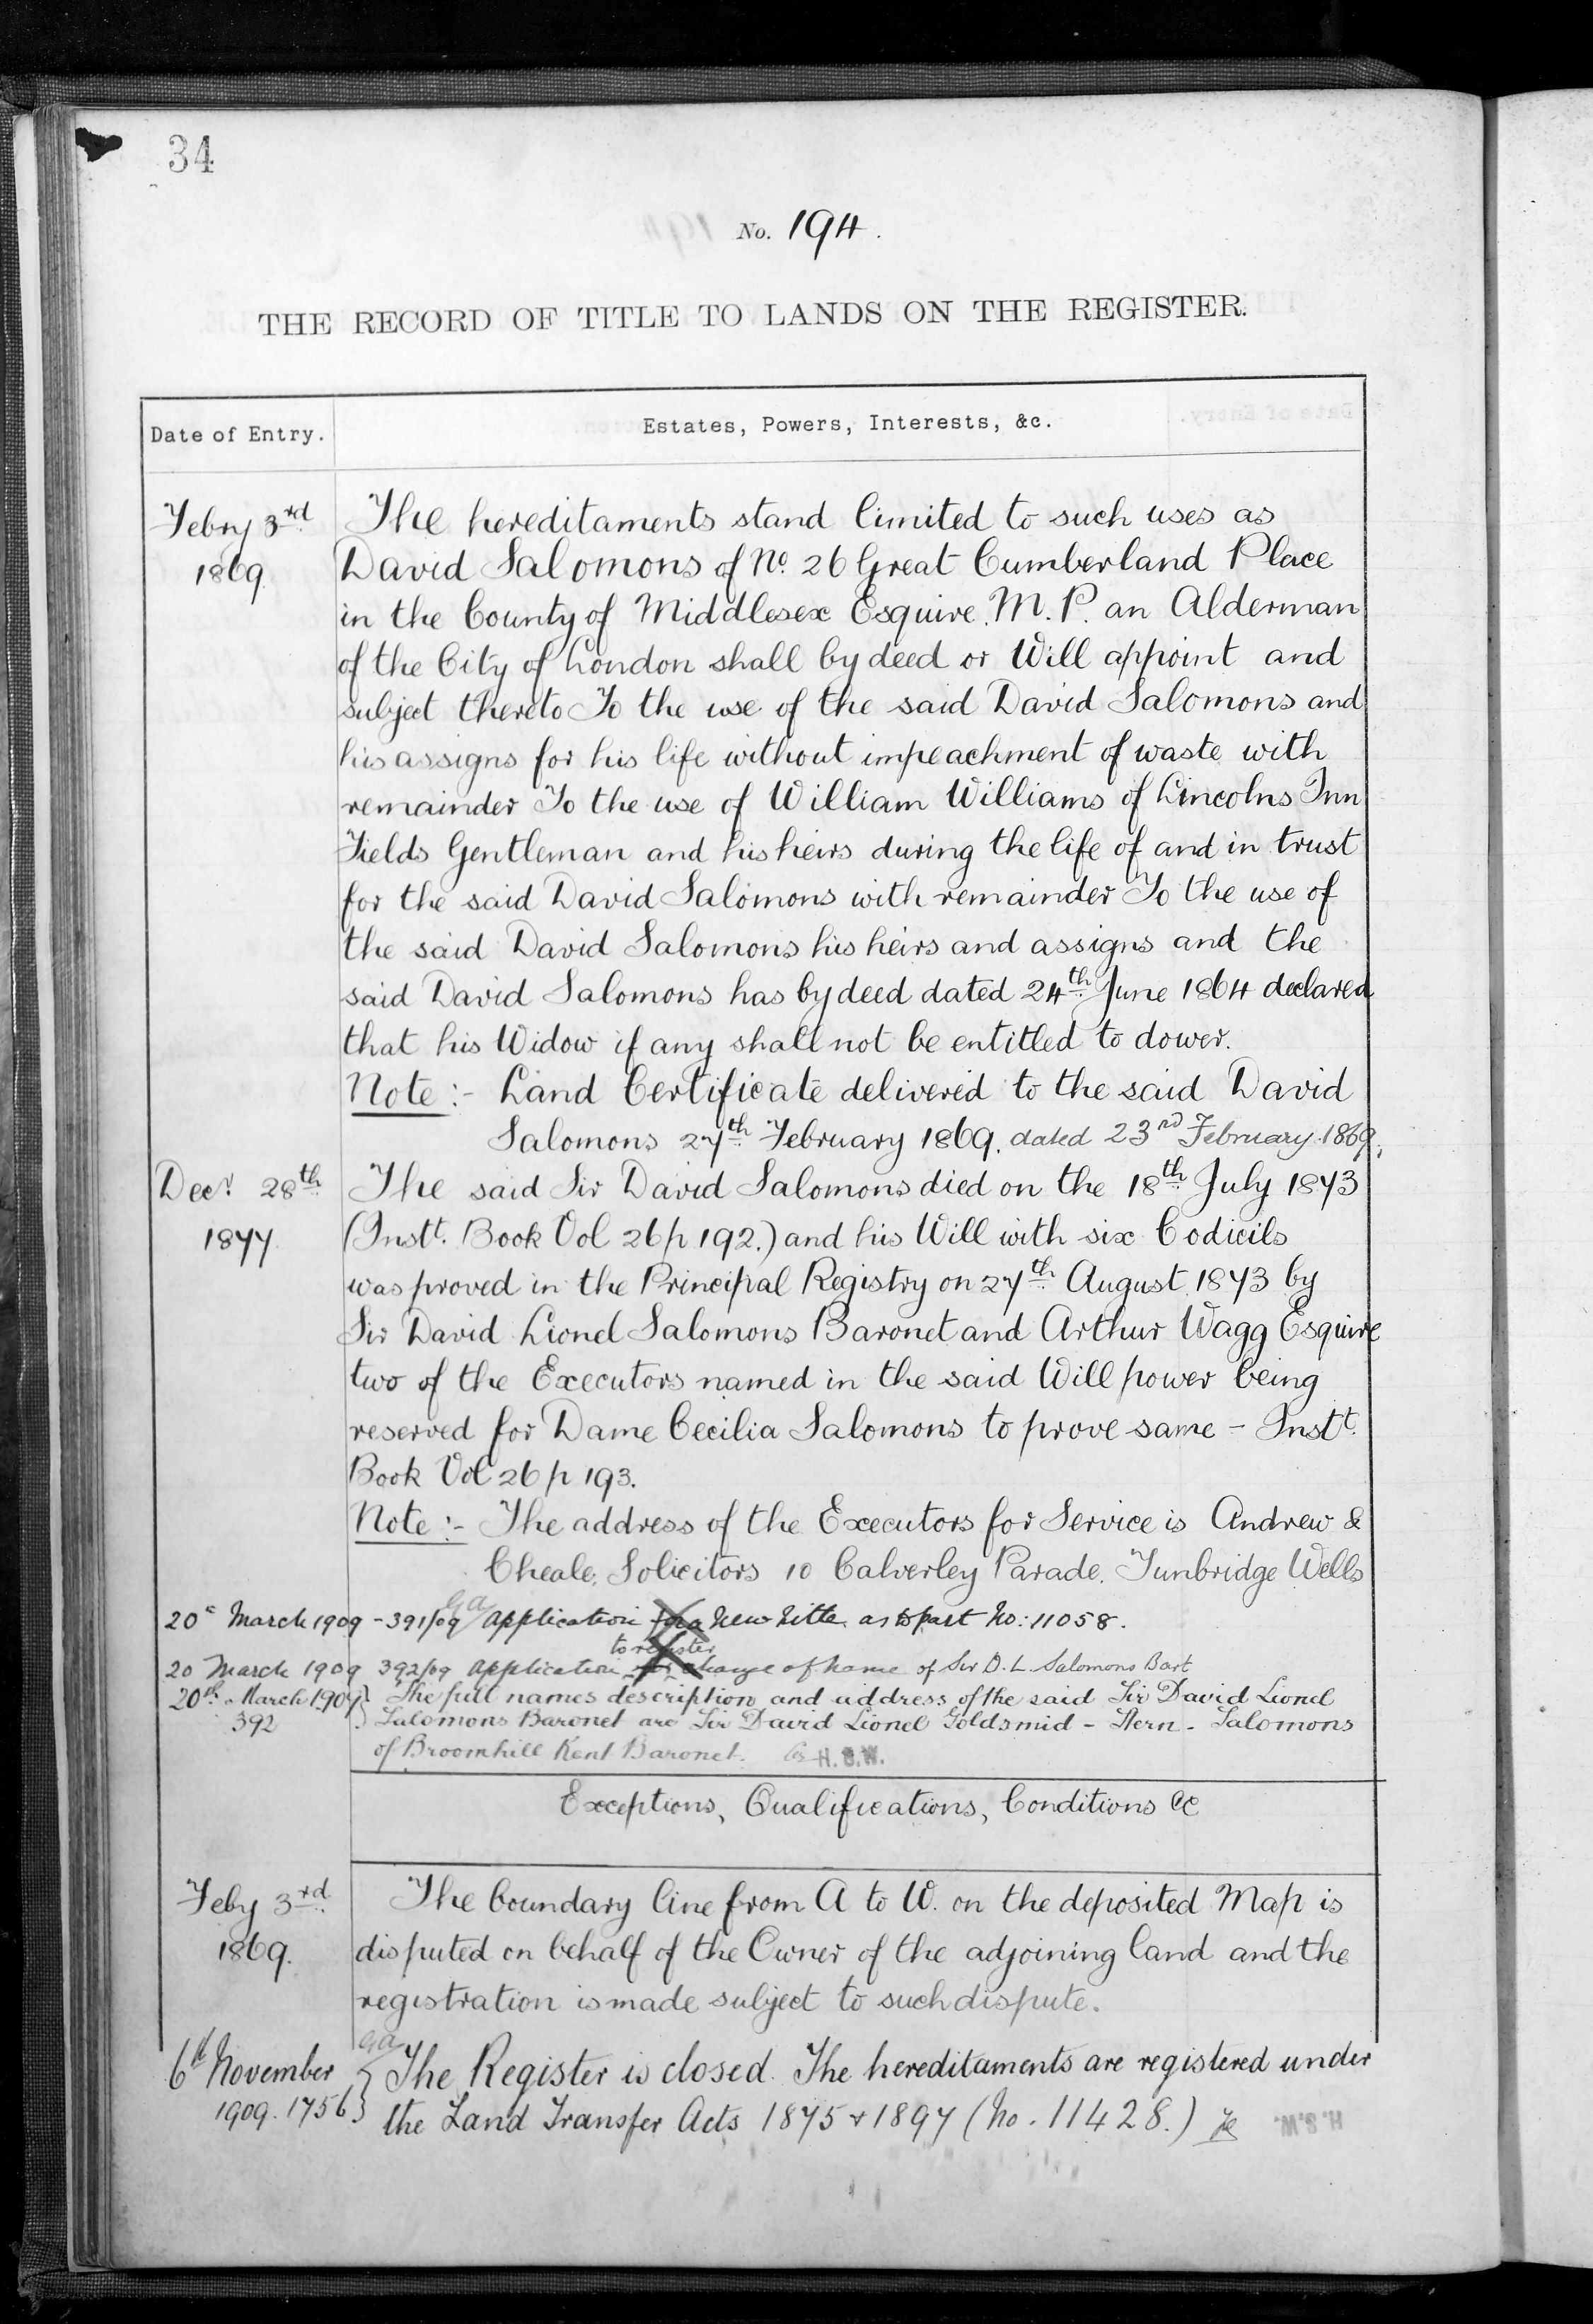 34
No. 194.
THE RECORD OF TITLE TO LANDS ON THE REGISTER.
Date of Entry.
Estates, Powers, Interests, &c.
Febry 3rd
1869.
The hereditaments stand limited to such uses as
David Salomons of No. 26 Great Cumberland Place
in the County of Middlesex Esquire. M.P. an Alderman
of the City of London shall by deed or Will appoint and
subject thereto To the use of the said David Salomons and
his assigns for his life without impeachment of waste with
remainder To the use of William Williams of Lincolns Inn
Fields Gentleman and his heirs during the life of and in trust
for the said David Salomons with remainder To the use of
the said David Salomons his heirs and assigns and the
said David Salomons has by deed dated 24th June 1864 declared
that his Widow if any shall not be entitled to dower.
Note:- Land Certificate delivered to the said David
Salomons 27th February 1869. dated 23rd February 1869.
Decr 28th
1877
The said Sir David Salomons died on the 18th July 1873
(Instt. Book Vol 26 p 192.) and his Will with six Codicils
was proved in the Principal Registry on 27th August 1873 by
Sir David Lionel Salomons Baronet and Arthur Wagg Esquire
two of the Executors named in the said Will power being
reserved for Dame Cecilia Salomons to prove same - Instt.
Book Vol 26 p 193.
Note:- The address of the Executors for Service is Andrew &
Cheale, Solicitors 10 Calverley Parade, Tunbridge Wells
20th March 1909 - 391/09 Application for a New Title as to part No: 11058.
to register
20 March 1909 392/09 Application for change of name of Sir D. L. Salomons Bart
20th March 1909} The full names description and address of the said Sir David Lionel
392 } Salomons Baronet are Sir David Lionel Goldsmid - Stern - Salomons
of Broomhill Kent Baronet. H.S.W.
Exceptions, Qualifications, Conditions &c
Feby 3rd
1869.
The boundary line from A to W. on the deposited Map is
disputed on behalf of the Owner of the adjoining land and the
registration is made subject to such dispute.
6th November } The Register is closed. The hereditaments are registered under
1909. 1756} the Land Transfer Acts 1875 & 1897 (No. 11428.) H.S.W.